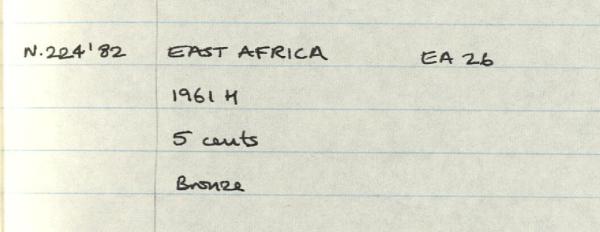 N.224'82 EAST AFRICA EA 26
1961 H
5 cents
Bronze